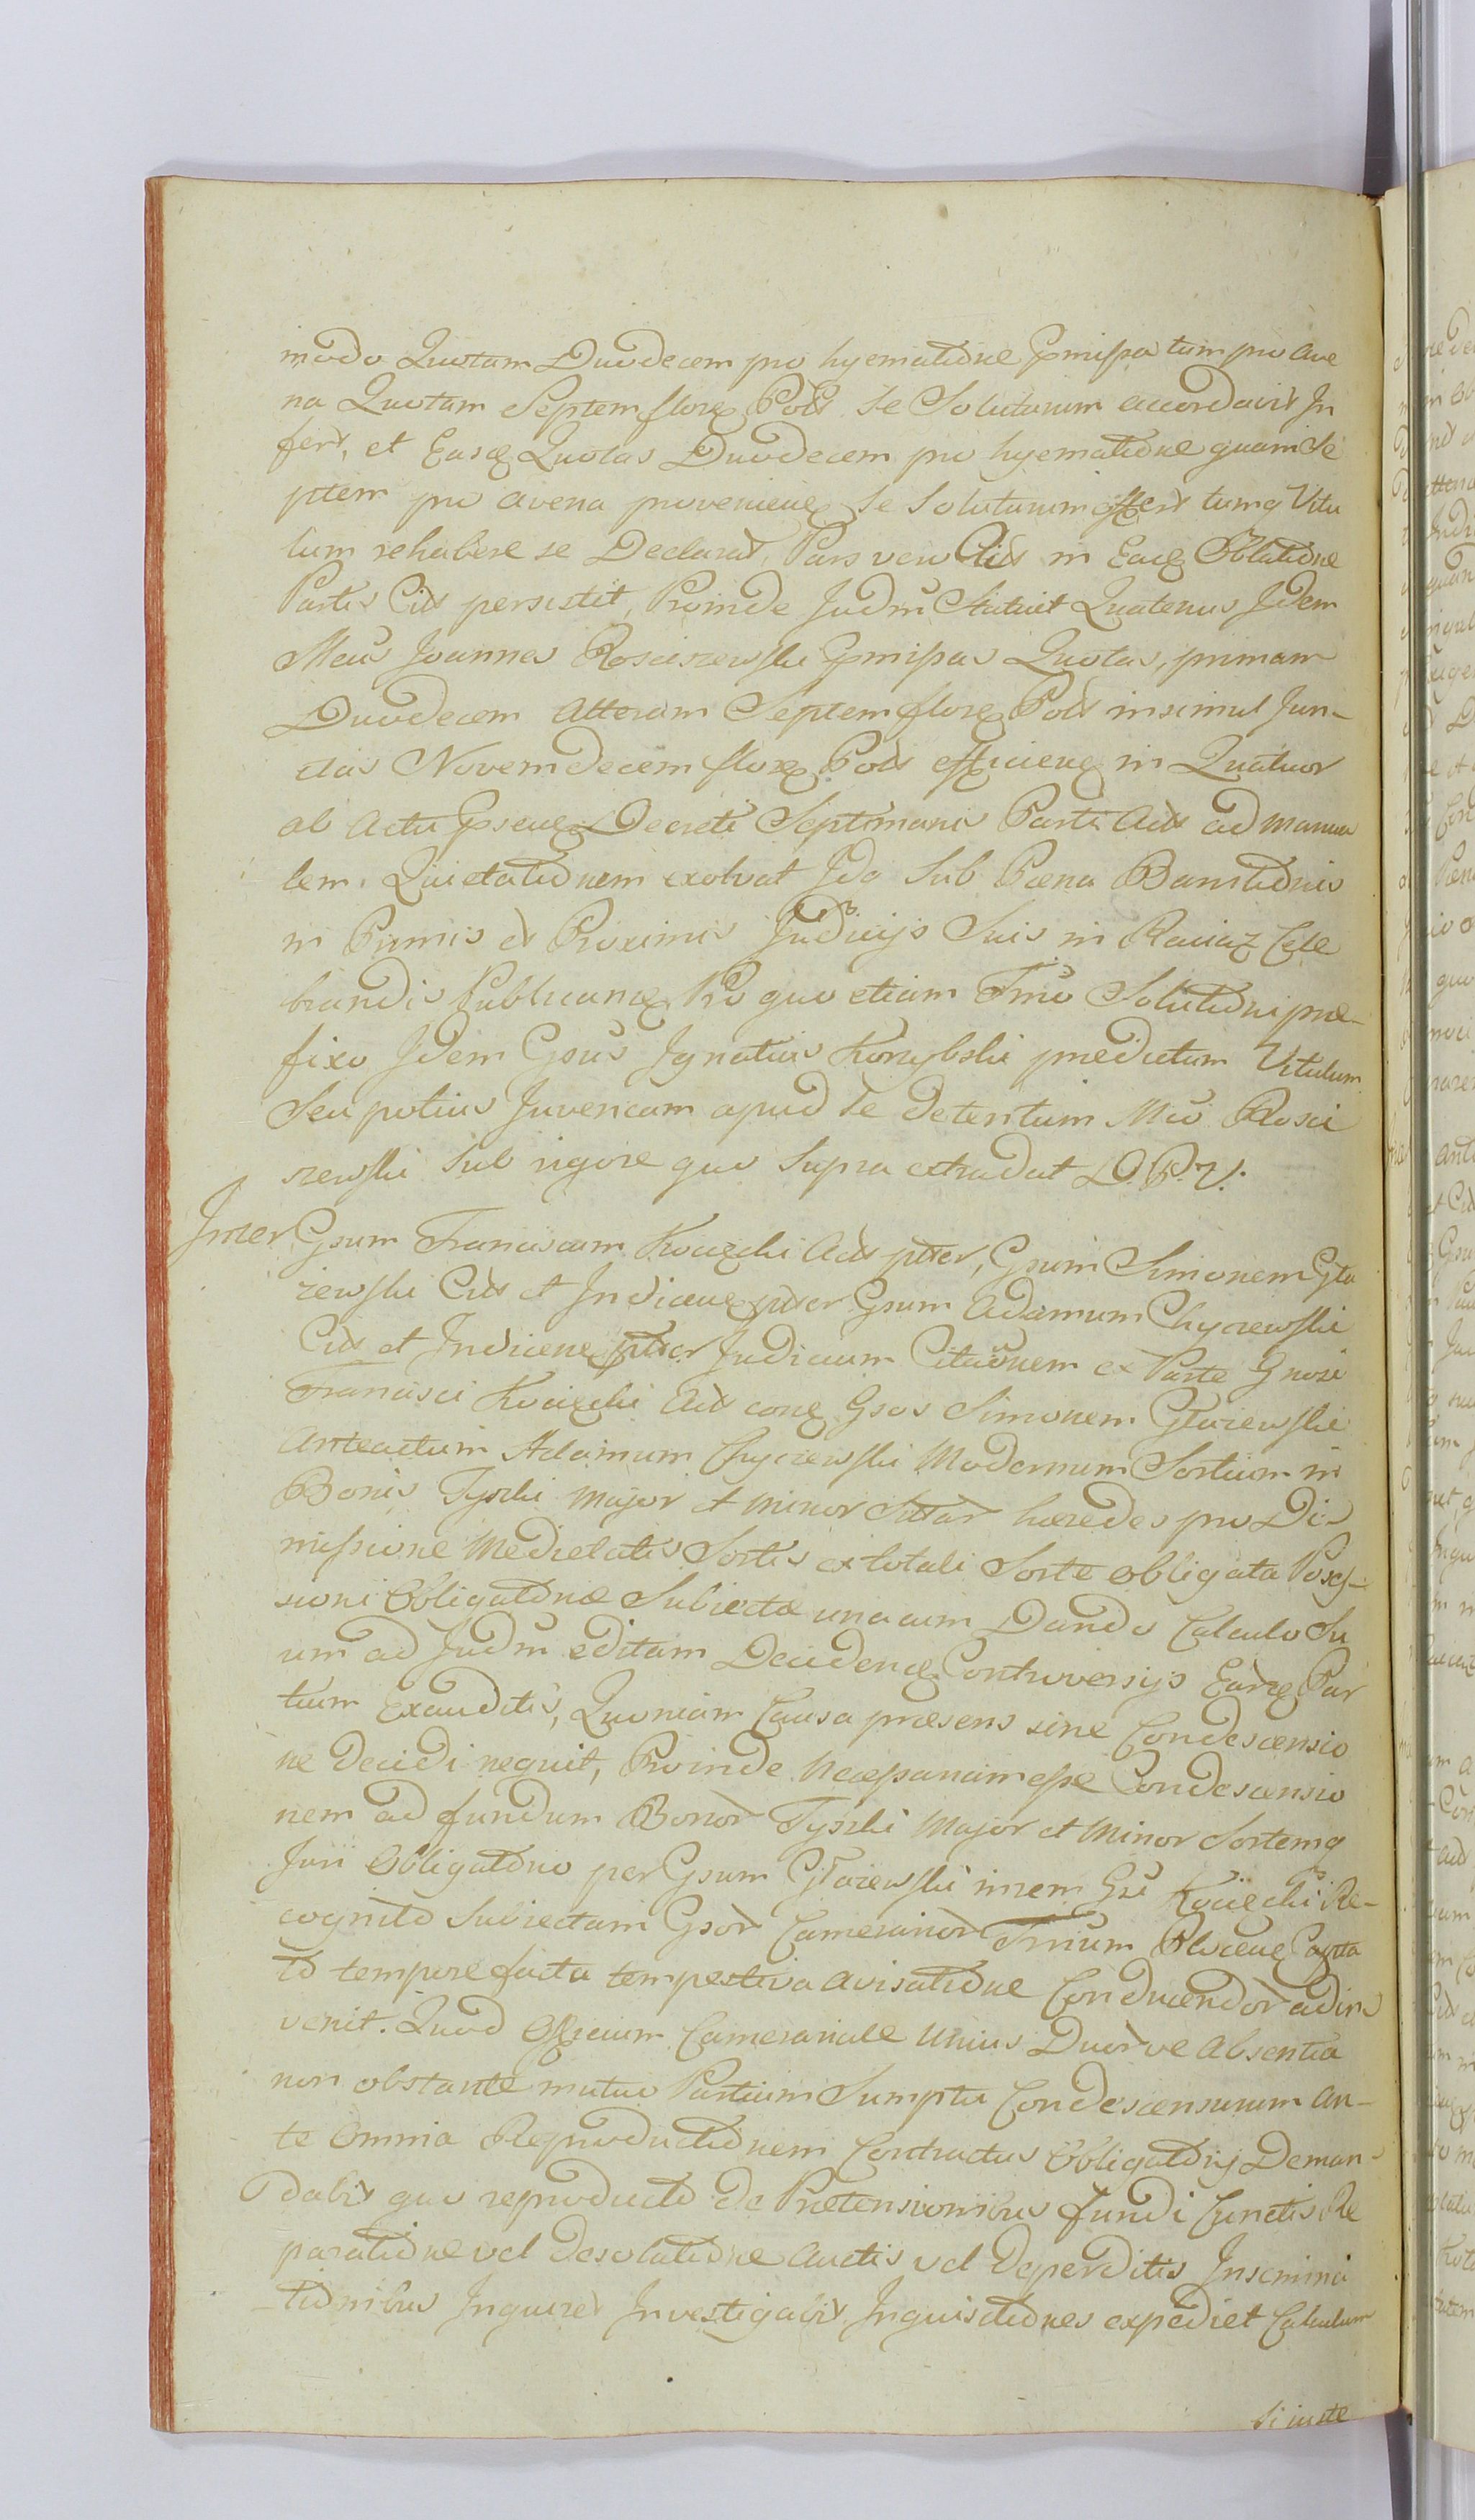 modo Quotam Duodecem pro hyematione praemissa tum pro ave
na Quotam Septem floren Pols se Soluturum accordavit In
fert, et Easq Quotas Duodecem pro hyematione quam Se
ptem pro avena provenien se Soluturum offert tumq Vitu
lum rehabere se Declarat, Pars vero Citt in Eaq Oblatione
Partis Citt persistit, Proinde Judm Statuit Quatenus Idem
Mcus Joannes Rosciszewski praemissas Quotas, primam
Duodecem Alteram Septem floren Pols insimul Jun-
ctas Novemdecem floren Pols efficien in Quatuor
ab Actu praesen Decreti Septimanis Parti Act ad manua
lem Quietationem exolvat Idq Sub Paena Bannitionis
in Primis et Proximis Judicijs Suis in Raciaz Cele
brandis Publican Pro quo etiam Tmo Solutioni prae-
fixo Idem Gsus Ignatius Korzybski praedictum Vitulum
Seu potius Juvencam apud se detentum Mco Rosci
szewski sub rigore quo supra extradat D. P. V.
Inter Gsum Franciscum Kocięcki Act pter, Gsum Simonem Gła
zewski Citt et Indicen pter Gsum Adamum Chyczewski
Citt et Indicen pter Judicium Citationem ex Parte Gnosi
Francisci Kocięcki Act con Gsos Simonem Głazewski
Anteactum Adamum Chyczewski Modernum Sortium in
Bonis Tyszki Major et Minor Sitar haeredes pro Di-
missione Medietatis Sortis ex totali Sorte obligata Posses-
sioni Obligatoriae Subiectae una cum Dando Calculo Su
um ad Judm editam Deciden Controversijs Earq Par
tium Exauditis, Quoniam Causa praesens sine Condescensio
ne decidi nequit, Proinde Necessariam esse Condescensio
nem ad fundum Bonor Tyszki Major et Minor Sortemq
Juri Obligatorio per Gsum Głazewski inrem Gsi Kocięcki Re-
cognito Subiectam Gsor Camerarior Trium Plocen Capta
to tempore facta tempestiva avisatione Conducendor adin
venit. Quod Officium Camerariale Unius Duorve Absentia
non obstante mutuo Partium Sumptu Condescensurum An-
te Omnia Reproductionem Contractus Obligatorij Deman-
dabit quo reproducto de Praetensionibus fundi Cunctis Re
paratione vel Desolatione Auctis vel Deperditis Insemina
-tionibus Inquiret Investigabit Inquisitiones expediet Calculum
si iuste